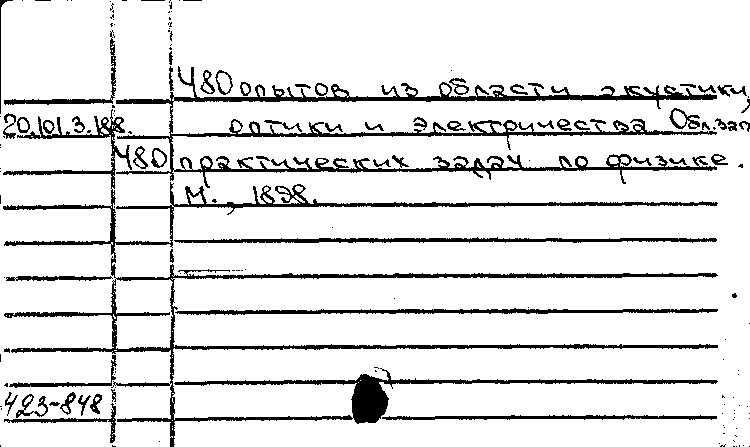 480 опытов из области акустики,
20.101.3.188. оптики и электричества. Обл.зап
480 практических задач по физике.
М., 1898.
423-848